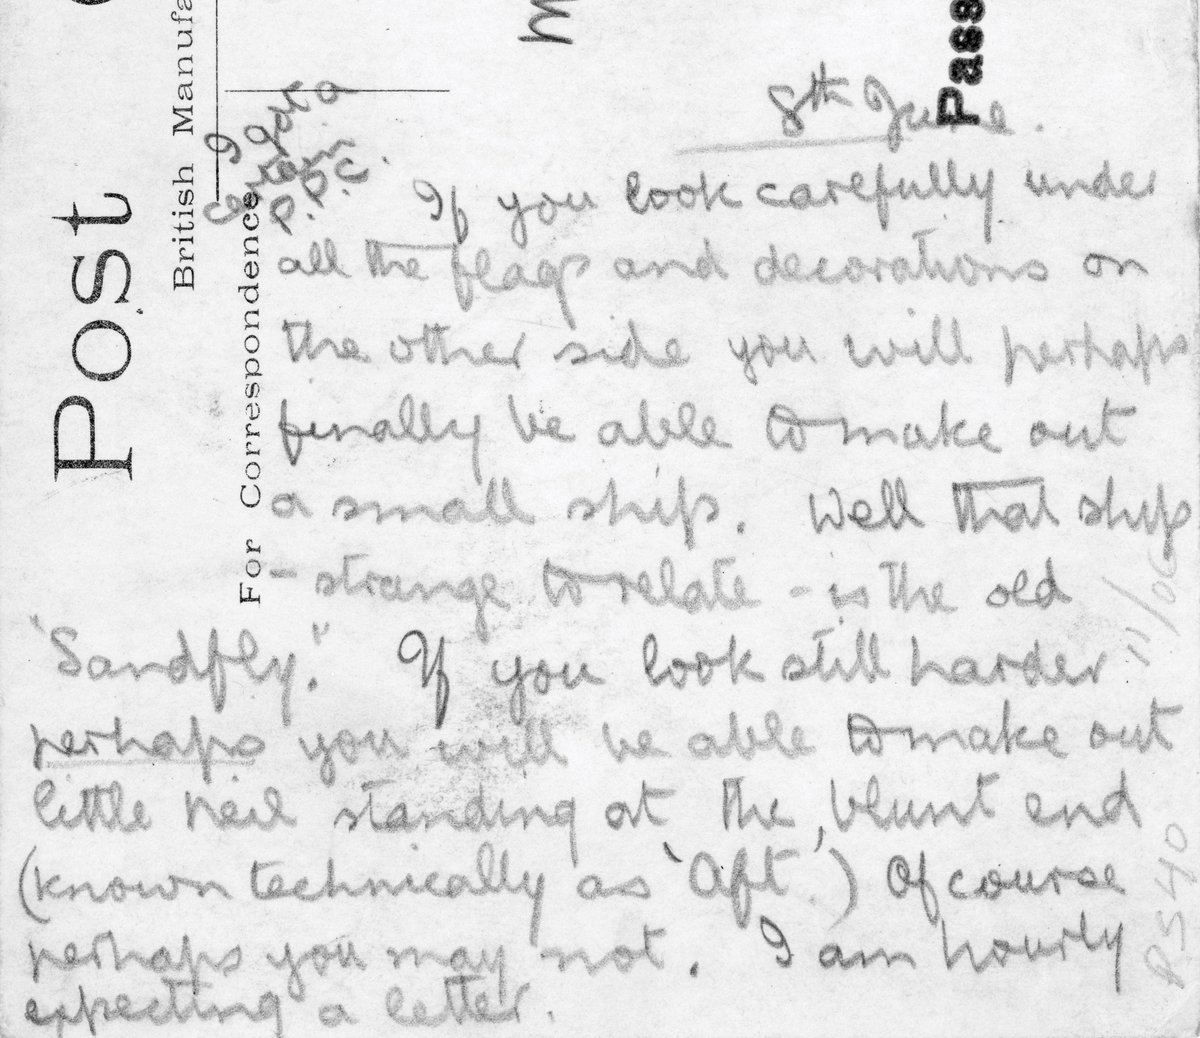 Post
British Manufa
For Correspondence
Pass
8th June.
If you look carefully under
all the flags and decorations on
the other side you will perhaps
finally be able to make out
a small ship. Well that ship
- strange to relate - is the old
"Sandfly." If you look still harder
perhaps you will be able to make out
little Neil standing at the blunt end
(known technically as 'Aft') Of course
perhaps you may not. I am hourly
expecting a letter.
9
P.P.C.
11/06
PS40